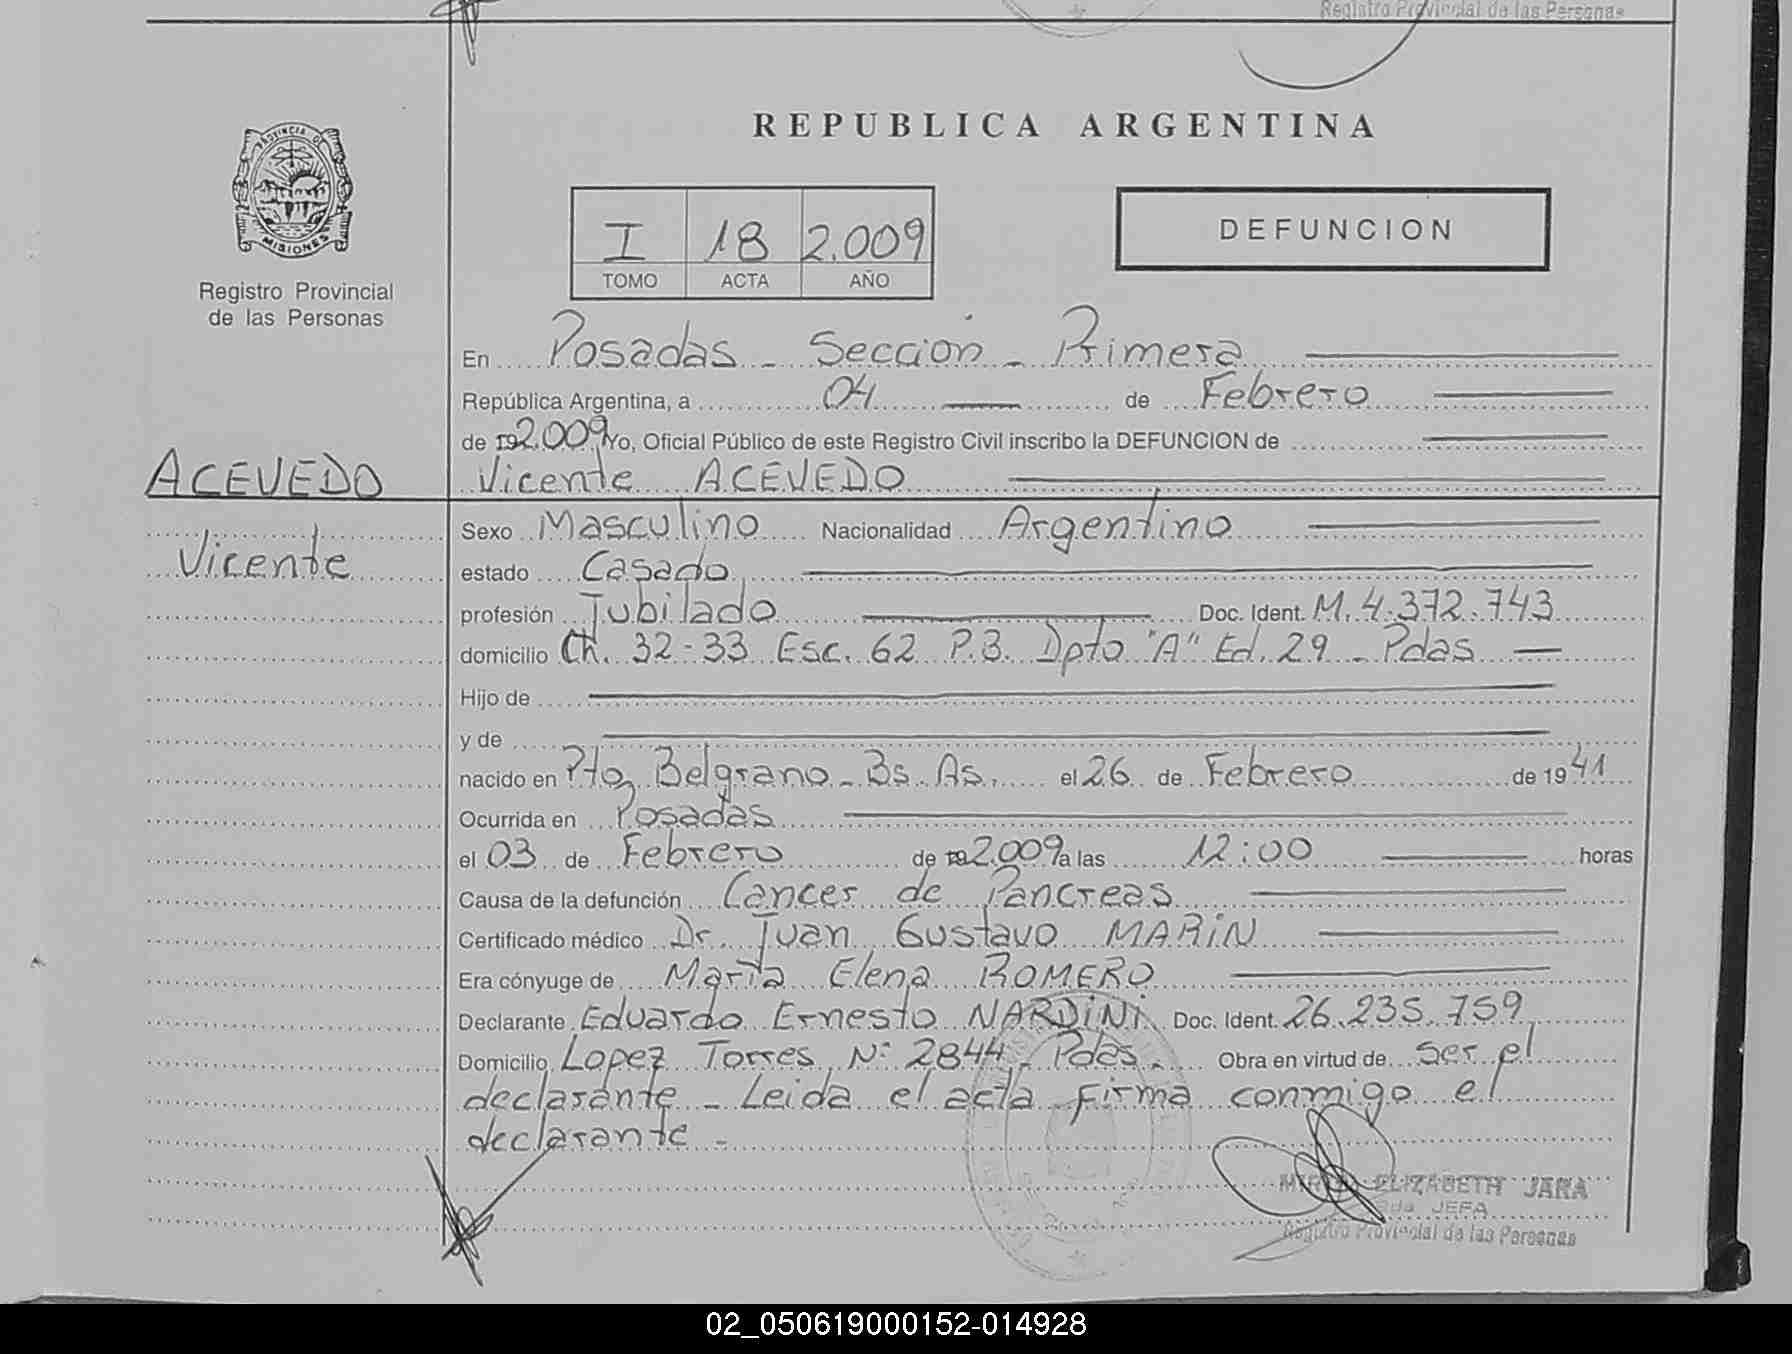 Registro Provincial de las Personas
REPUBLICA ARGENTINA
PROVINCIA DE
MISIONES
Registro Provincial
de las Personas
I 18 2.009
TOMO ACTA AÑO
DEFUNCION
En Posadas - Sección - Primera
República Argentina, a 04 de Febrero
de 19 2.009 Yo, Oficial Público de este Registro Civil inscribo la DEFUNCION de
ACEVEDO
Vicente ACEVEDO
Vicente
Sexo Masculino Nacionalidad Argentino
estado Casado
profesión Jubilado Doc. Ident. M. 4.372.743
domicilio Ch. 32-33 Esc. 62 P.B. Dpto "A" Ed. 29 - Pdas
Hijo de
y de
nacido en Pto Belgrano - Bs. As. el 26 de Febrero de 1941
Ocurrida en Posadas
el 03 de Febrero de 19 2.009 a las 12:00 horas
Causa de la defunción Cancer de Pancreas
Certificado médico Dr. Juan Gustavo MARIN
Era cónyuge de María Elena ROMERO
Declarante Eduardo Ernesto NARDINI Doc. Ident. 26.235.759
Domicilio Lopez Torres N° 2844 - Pdas. Obra en virtud de ser el
declarante - Leida el acta firma conmigo el
declarante -
ELIZABETH JARA
JEFA
Registro Provincial de las Personas
02_050619000152-014928